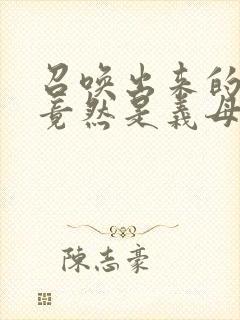 召唤出来的
竟然是义母
陈志豪